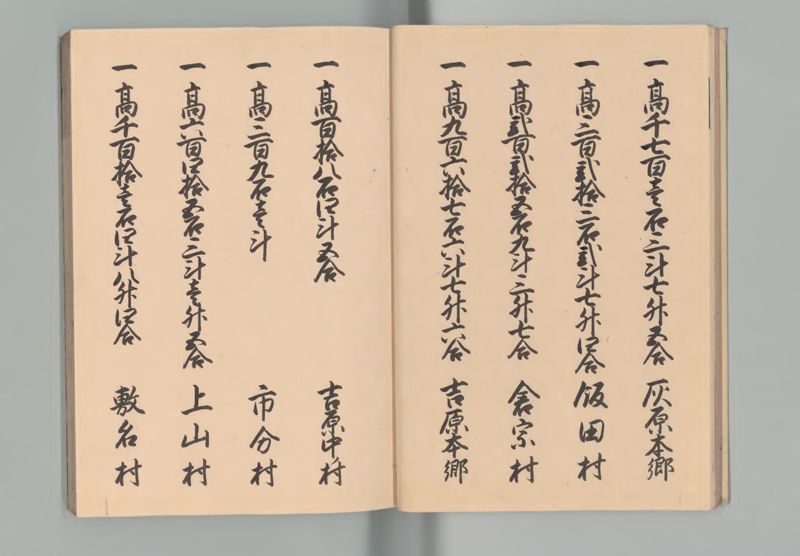 一高千七百壱石三斗七升五合 灰原本郷
一高三百弐拾三石弐斗七升四合 飯田村
一高弐百弐拾五石九斗三升七合 倉宗村
一高九百六拾七石六斗七升六合 吉原本郷
一高百拾八石四斗五合 吉原中村
一高三百九石壱斗 市分村
一高六百四拾五石三斗壱升五合 上山村
一高千百拾壱石四斗八升四合 敷名村